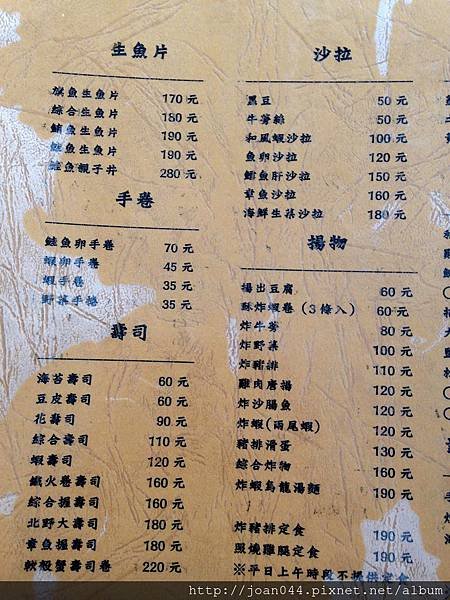 生魚片
旗魚生魚片 170元
綜合生魚片 180元
鮪魚生魚片 190元
鮭魚生魚片 190元
鮭魚親子丼 280元
手卷
鮭魚卵手卷 70元
蝦卵手卷 45元
蝦手卷 35元
野菜手捲 35元
壽司
海苔壽司 60元
豆皮壽司 60元
花壽司 90元
綜合壽司 110元
蝦壽司 120元
鐵火卷壽司 160元
綜合握壽司 160元
北野大壽司 180元
章魚握壽司 180元
軟殼蟹壽司卷 220元
沙拉
黑豆 50元
牛蒡絲 50元
和風蝦沙拉 100元
魚卵沙拉 120元
鱈魚肝沙拉 150元
章魚沙拉 160元
海鮮生菜沙拉 180元
揚物
揚出豆腐 60元
酥炸蝦卷(3條入) 60元
炸牛蒡 80元
炸野菜 100元
炸豬排 110元
雞肉唐揚 120元
炸沙腸魚 120元
炸蝦(兩尾蝦) 120元
豬排滑蛋 130元
綜合炸物 160元
炸蝦烏龍湯麵 190元
炸豬排定食 190元
照燒雞腿定食 190元
※平日上午時段不提供定食
http://joan044.pixnet.net/album